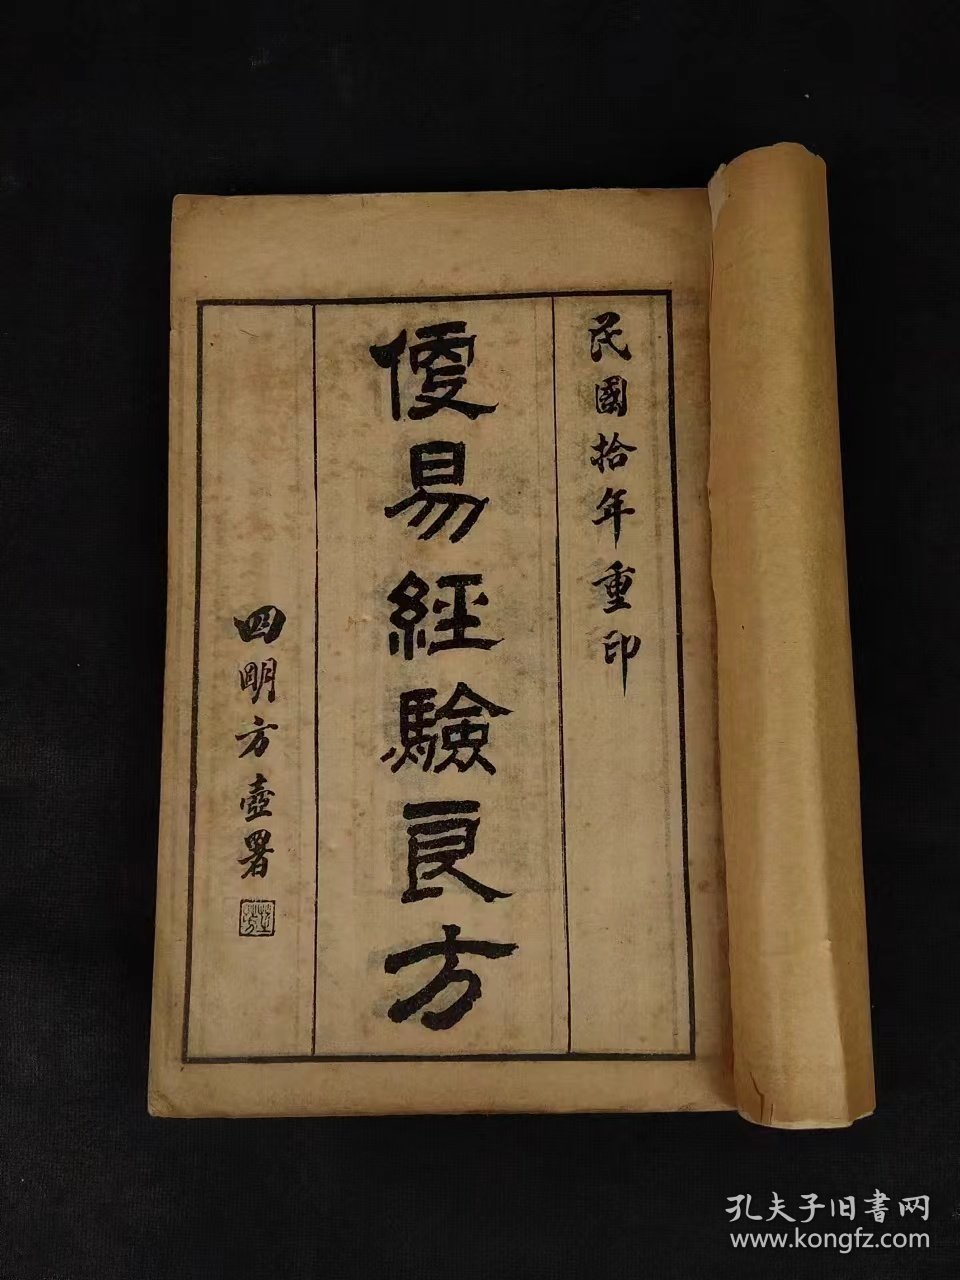 民國拾年重印
便易經驗良方
四明方壺署
孔夫子旧書网
www.kongfz.com